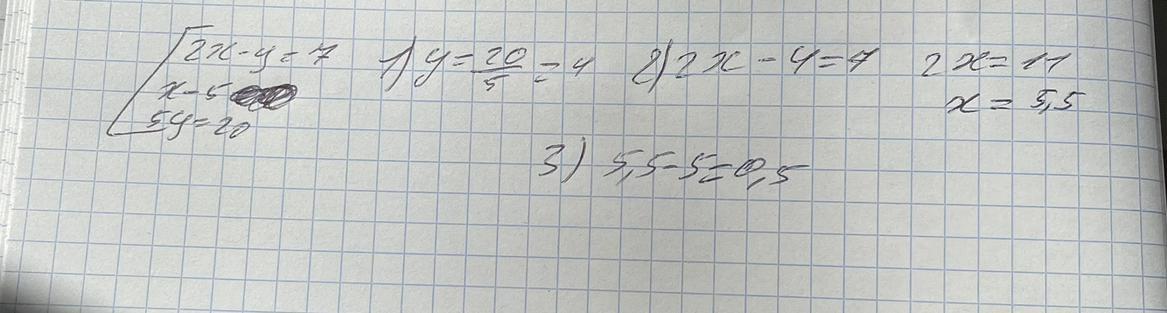 2x-y=7 1) y=20/5=4 2) 2x-4=7 2x=11
x-5 x=5,5
5y=20
3) 5,5-5=0,5